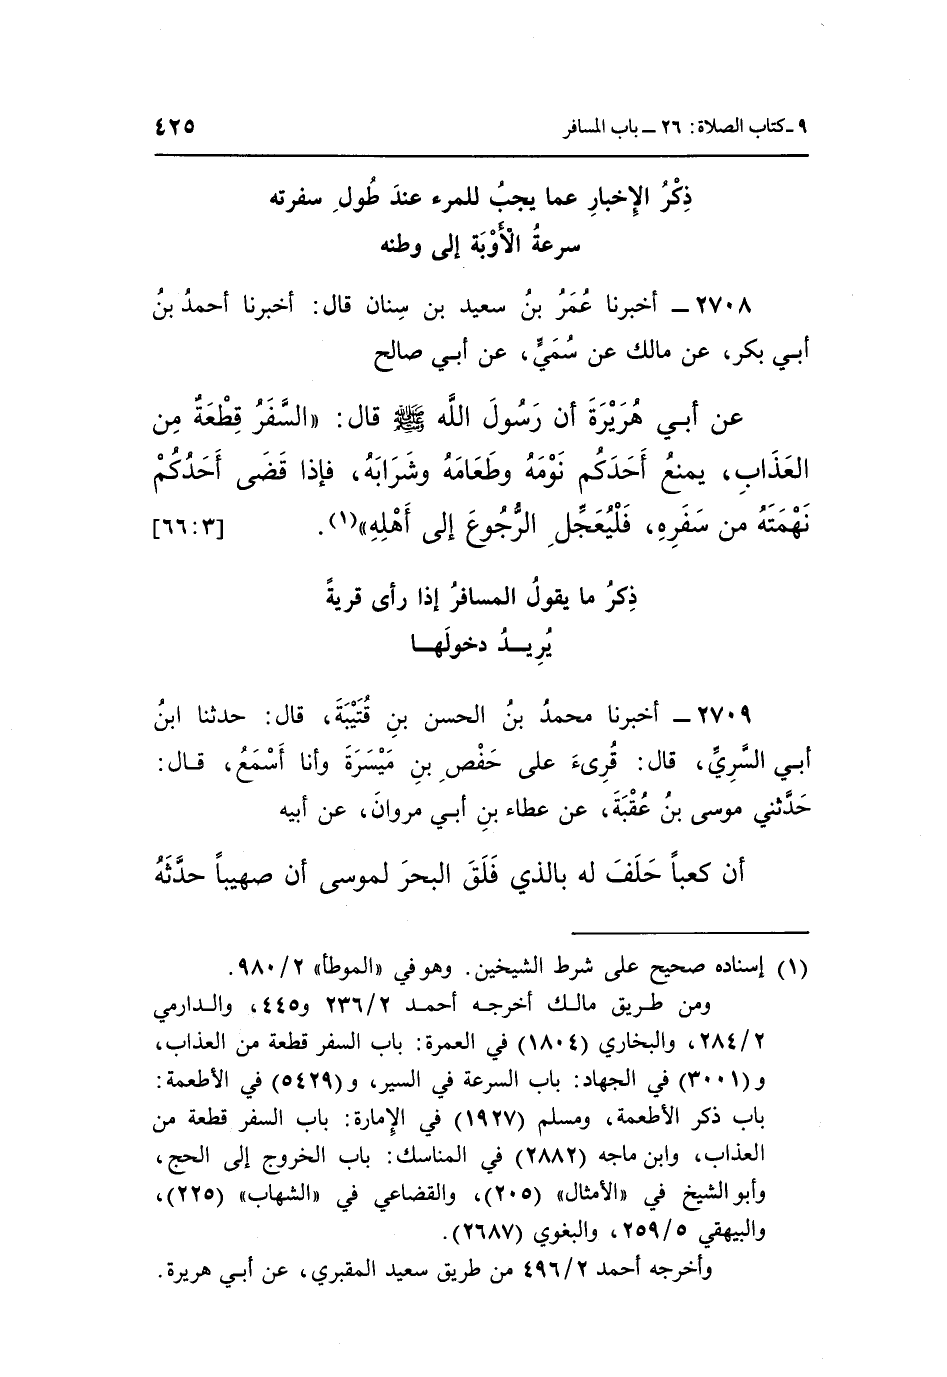 ٩ ـ كتاب الصلاة: ٢٦ ـ باب المسافر ٤٢٥
ذِكْرُ الإِخبارِ عما يجبُ للمرء عندَ طُولِ سفرته
سرعةُ الْأَوْبَة إلى وطنه
٢٧٠٨ ـ أخبرنا عُمَرُ بنُ سعيد بن سِنان قال: أخبرنا أحمدُ بنُ
أبـي بكر، عن مالك عن سُمَيٍّ، عن أبـي صالح
عن أبـي هُرَيْرَةَ أن رَسُولَ اللَّه ﷺ قال: «السَّفَرُ قِطْعَةٌ مِن
العَذَابِ، يمنعُ أَحَدَكُم نَوْمَهُ وطَعَامَهُ وشَرَابَهُ، فإذا قَضَى أَحَدُكُمْ
نَهْمَتَهُ من سَفَرِهِ، فَلْيُعَجِّلِ الرُّجُوعَ إلى أَهْلِهِ»(١). [٦٦:٣]
ذِكرُ ما يقولُ المسافرُ إذا رأى قريةً
يُرِيـدُ دخولَهـا
٢٧٠٩ ـ أخبرنا محمدُ بنُ الحسن بنِ قُتَيْبَةَ، قال: حدثنا ابنُ
أبـي السَّرِيِّ، قال: قُرِىءَ على حَفْصِ بنِ مَيْسَرَةَ وأنا أَسْمَعُ، قـال:
حَدَّثني موسى بنُ عُقْبَةَ، عن عطاء بنِ أبـي مروانَ، عن أبيه
أن كعباً حَلَفَ له بالذي فَلَقَ البحرَ لموسى أن صهيباً حدَّثَهُ
(١) إسناده صحيح على شرط الشيخين. وهو في «الموطأ» ٩٨٠/٢.
ومن طـريق مالـك أخرجـه أحمـد ٢٣٦/٢ و٤٤٥، والـدارمي
٢٨٤/٢، والبخاري (١٨٠٤) في العمرة: باب السفر قطعة من العذاب،
و(٣٠٠١) في الجهاد: باب السرعة في السير، و(٥٤٢٩) في الأطعمة:
باب ذكر الأطعمة، ومسلم (١٩٢٧) في الإمارة: باب السفر قطعة من
العذاب، وابن ماجه (٢٨٨٢) في المناسك: باب الخروج إلى الحج،
وأبو الشيخ في «الأمثال» (٢٠٥)، والقضاعي في «الشهاب» (٢٢٥)،
والبيهقي ٢٥٩/٥، والبغوي (٢٦٨٧).
وأخرجه أحمد ٤٩٦/٢ من طريق سعيد المقبري، عن أبـي هريرة.